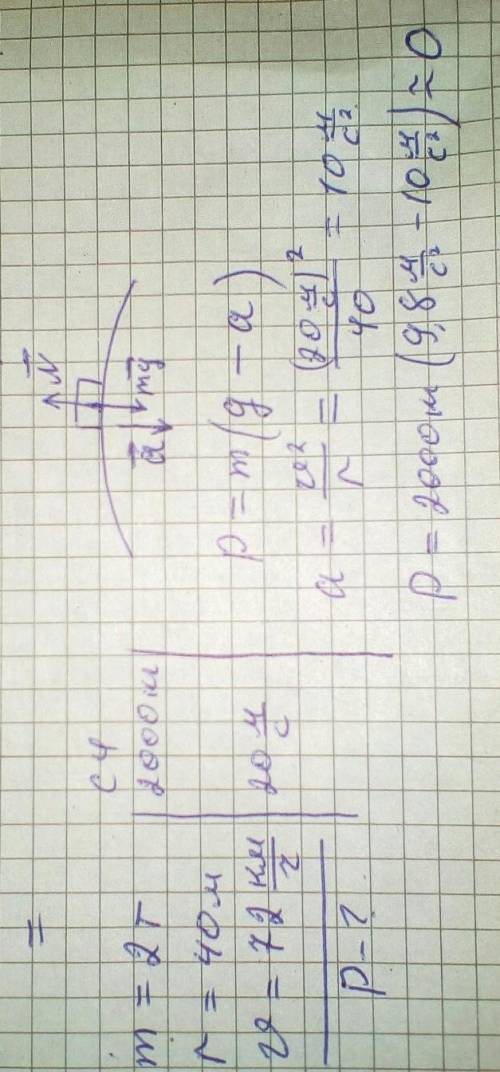 =
СИ
m = 2т
2000 м
r = 40 м
v = 72 км/г
20 м/с
P - ?
N
a
mg
P = m(g - a)
a = v²/r = (20 м/с)²/40 = 10 м/с²
P = 2000 м (9,8 м/с² - 10 м/с²) ≈ 0